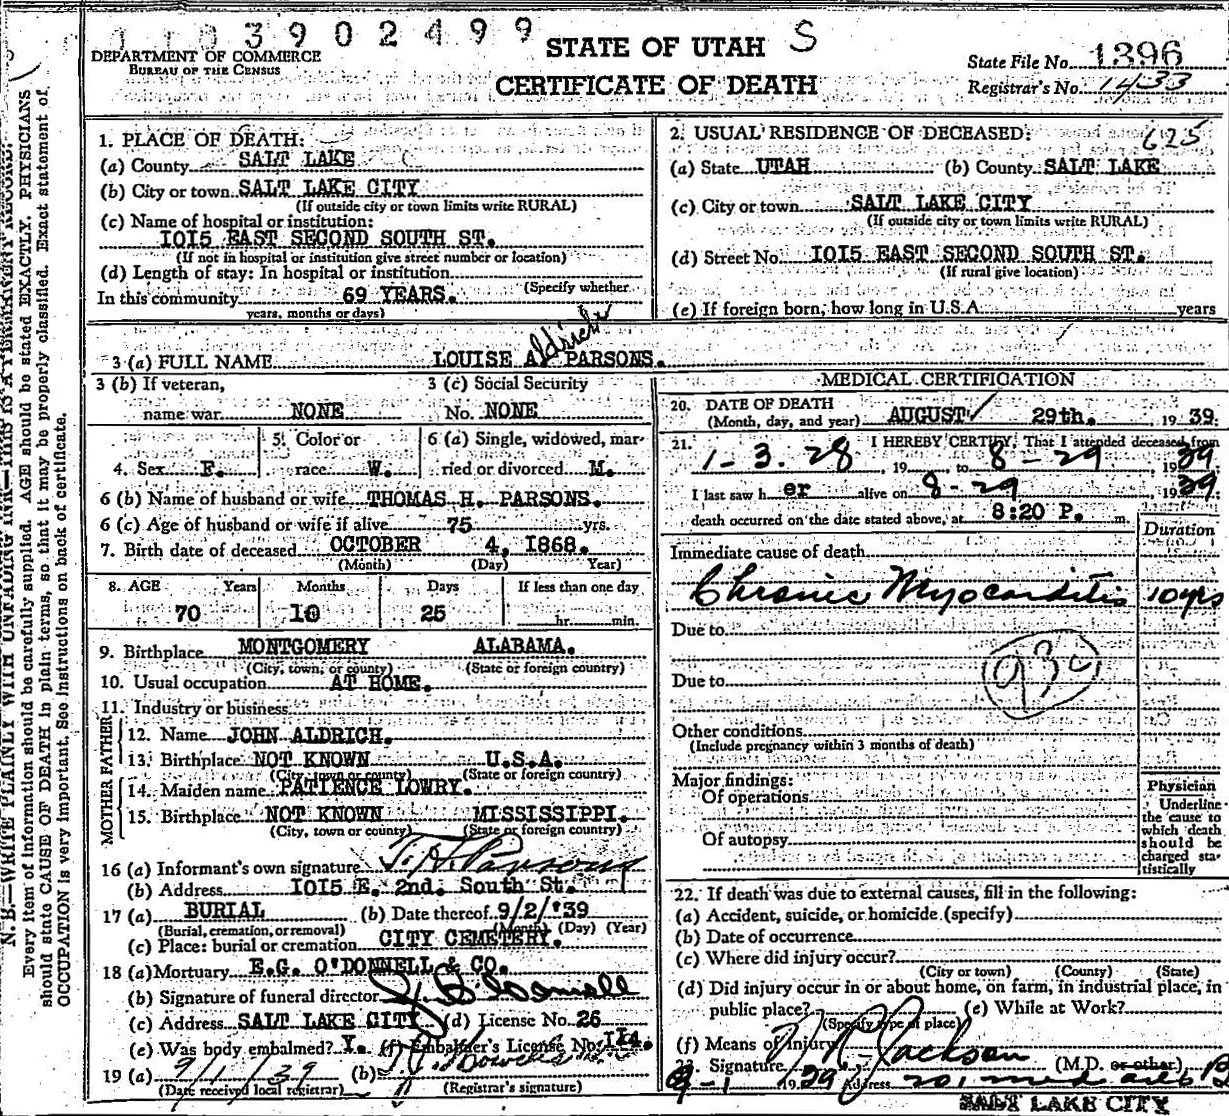 3902499
STATE OF UTAH S
CERTIFICATE OF DEATH
DEPARTMENT OF COMMERCE
BUREAU OF THE CENSUS
State File No. 1396
Registrar's No. 1433
N. B.—WRITE PLAINLY WITH UNFADING INK—THIS IS A PERMANENT RECORD.
Every item of information should be carefully supplied. AGE should be stated EXACTLY. PHYSICIANS
should state CAUSE OF DEATH in plain terms, so that it may be properly classified. Exact statement of
OCCUPATION is very important. See instructions on back of certificate.
1. PLACE OF DEATH:
(a) County SALT LAKE
(b) City or town SALT LAKE CITY
(If outside city or town limits write RURAL)
(c) Name of hospital or institution:
1015 EAST SECOND SOUTH ST.
(If not in hospital or institution give street number or location)
(d) Length of stay: In hospital or institution
(Specify whether
In this community 69 YEARS.
years, months or days)
2. USUAL RESIDENCE OF DECEASED: 625
(a) State UTAH (b) County SALT LAKE
(c) City or town SALT LAKE CITY
(If outside city or town limits write RURAL)
(d) Street No. 1015 EAST SECOND SOUTH ST.
(If rural give location)
(e) If foreign born, how long in U.S.A. years
3 (a) FULL NAME LOUISE A. PARSONS.
Aldrich
3 (b) If veteran, name war NONE
3 (c) Social Security No. NONE
4. Sex F.
5. Color or race W.
6 (a) Single, widowed, married or divorced M.
6 (b) Name of husband or wife THOMAS H. PARSONS.
6 (c) Age of husband or wife if alive 75 yrs.
7. Birth date of deceased OCTOBER 4, 1868.
(Month) (Day) Year)
8. AGE Years Months Days If less than one day
70 10 25 hr. min.
9. Birthplace MONTGOMERY ALABAMA.
(City, town, or county) (State or foreign country)
10. Usual occupation AT HOME.
11. Industry or business
FATHER
12. Name JOHN ALDRICH.
13. Birthplace NOT KNOWN U.S.A.
(City, town or county) (State or foreign country)
MOTHER
14. Maiden name PATIENCE LOWRY.
15. Birthplace NOT KNOWN MISSISSIPPI.
(City, town or county) (State or foreign country)
16 (a) Informant's own signature T. H. Parsons
(b) Address 1015 E. 2nd. South St.
17 (a) BURIAL (b) Date thereof 9/2/'39
(Burial, cremation, or removal) (Month) (Day) (Year)
(c) Place: burial or cremation CITY CEMETERY.
18 (a) Mortuary E.G. O'DONNELL & CO.
(b) Signature of funeral director O'Donnell
(c) Address SALT LAKE CITY (d) License No. 26
(e) Was body embalmed? Y. (f) Embalmer's License No. 114.
19 (a) 9/1/39 (b)
(Date received local registrar) (Registrar's signature)
MEDICAL CERTIFICATION
20. DATE OF DEATH
(Month, day, and year) AUGUST 29th. 1939.
21. I HEREBY CERTIFY, That I attended deceased from
1-3-28, 19 to 8-29, 1939
I last saw her alive on 8-29, 1939
death occurred on the date stated above, at 8:20 P. m.
Duration
Immediate cause of death
Chronic Myocarditis 10 yrs
Due to
93c
Due to
Other conditions
(Include pregnancy within 3 months of death)
Major findings:
Of operations
Of autopsy
Physician
Underline
the cause to
which death
should be
charged sta-
tistically
22. If death was due to external causes, fill in the following:
(a) Accident, suicide, or homicide (specify)
(b) Date of occurrence
(c) Where did injury occur?
(City or town) (County) (State)
(d) Did injury occur in or about home, on farm, in industrial place, in
public place? (e) While at Work?
(Specify type of place)
(f) Means of Injury
23. Signature Jackson (M.D. or other)
9-1 1939 Address 201 Med Arts B
SALT LAKE CITY